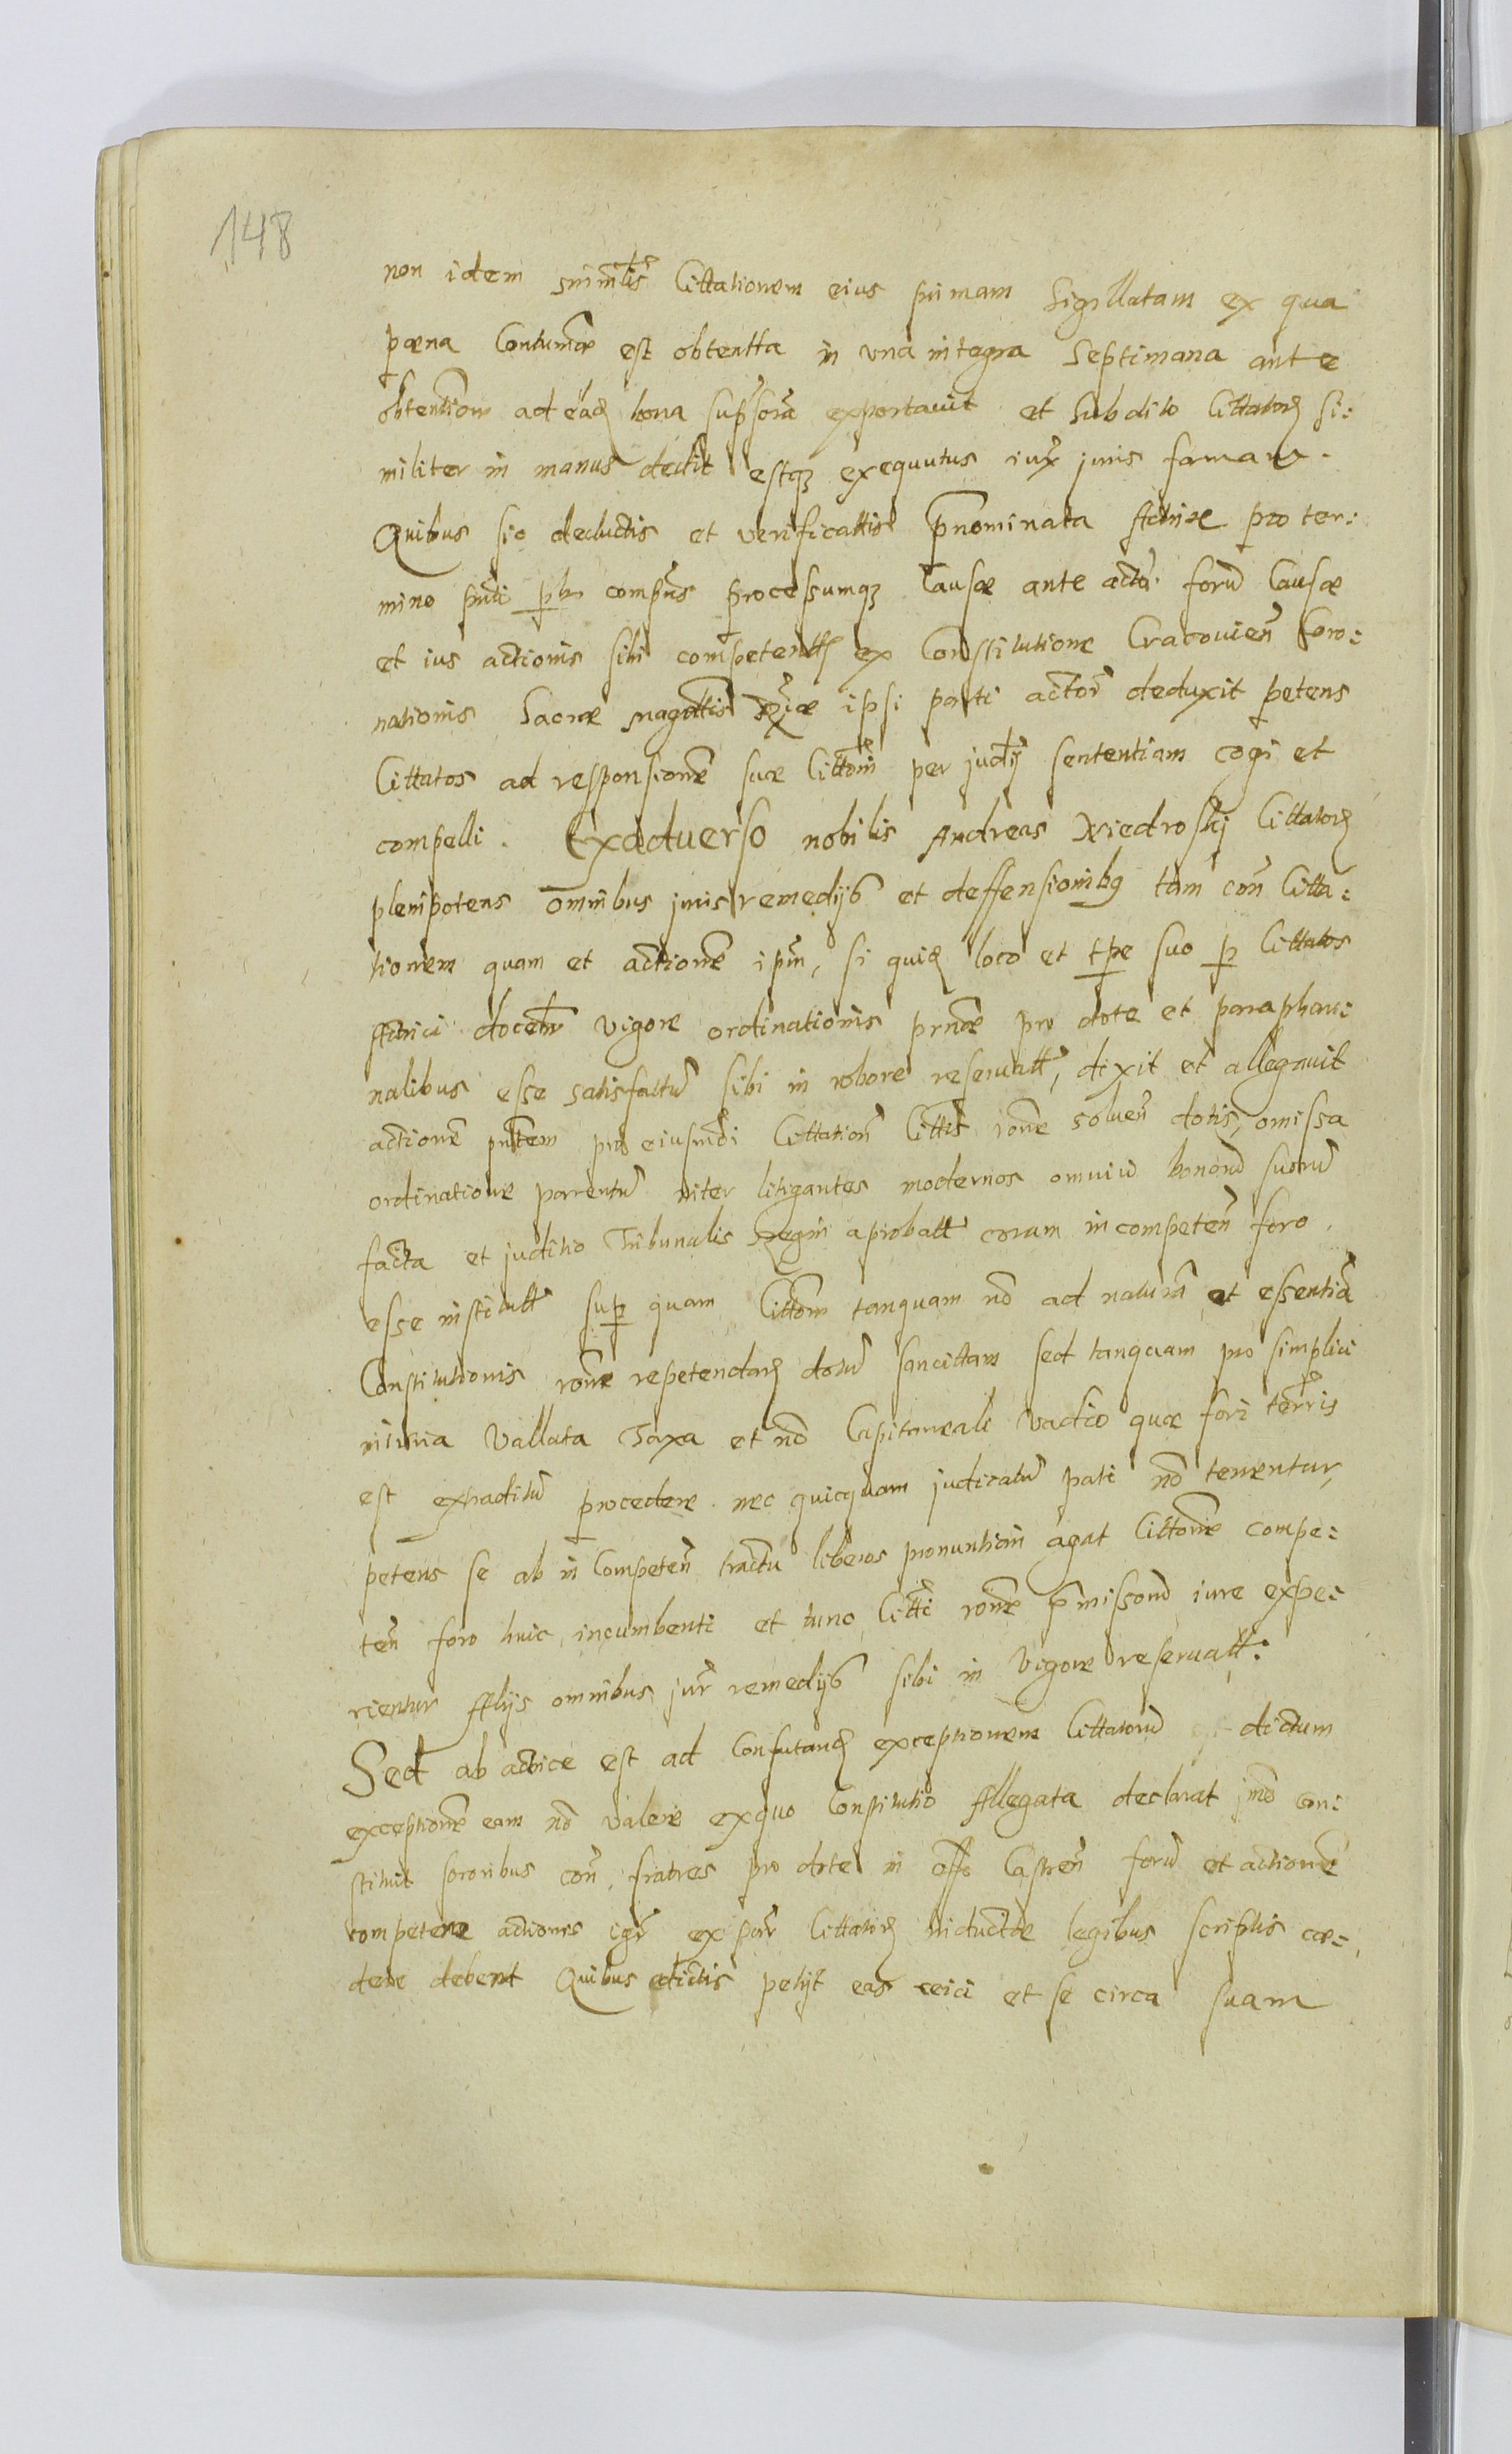 148
non idem ministlis Cittationem eius primam Sigillatam ex qua
pœna Contumâe est obtentta in vna integra Septimana ante
obtentiom ad eâdẽ bona suprsora exportauit et Subdito Cittatorẽ si:
militer in manus dedit estqz exequutus iux juris formam.
Quibus sic deductis et verificattis pnominata Actrix pro ter:
mino pnti compns processumqz Causæ ante acta forũ Causæ
et ius actionis sibi competentẽ ex Constitutione Cracouieñ Coro:
nationis Sacræ magattis Rgiæ ipsi parti actori deduxit petens
Cittatos ad responsionẽ suæ Cittoni per judij sententiam cogi et
compelli. Exaduerso nobilis Andreas Xiedroski Cittatorẽ
plenipotens omnibus juris remedijs et deffensionibq tam coñ Citta:
tionem quam et actionẽ ipm, si quidẽ loco et tpe suo p Cittatos
Actrici docebr vigore ordinationis prnæ pro dote et paraphær:
nalibus esse satisfactũ sibi in robore reseruatt, dixit et allegauit
actionẽ pntem pro eiusmdi Cittationẽ Cittis rone soluen dotis, omissa
ordinatione parentũ inter litigantes modernos omniũ bonorũ suorũ
facta et juditio Tribunalis Regni aprobatt coram in competeñ foro
esse institutt sup quam Cittom tanquam nõ ad naturã et essentiã
Constitutionis rone repetendarẽ dotũ sancittam sed tanquam pro simplici
iniuria Vallata Taxa et nõ Capitaneale vadio quæ fori terris
est expraditũ procedere nec quicquam judicatũ pati nõ tenentur,
petens se ab in Competeñ tractu liberos pronuntiari agat Cittonẽ compe:
teñ foro huic incumbenti et tunc Citti rone pmissorũ iure expe:
rientur Alijs omnibus jur remedijs sibi in vigore reseruatt:
Sed ab actrice est ad Confutandẽ exceptionem Cittatorũ dictum
exceptionẽ eam nõ valere exquo Constitutio Allegata declarat jmo con:
stituit sororibus coñ. fratres pro dote in offo Castreñ forũ et actionẽ
competere actionis igr ex par Cittatorẽ inductæ legibus scriptis cæ:
dere debent Quibus edictis petijt eas reici et se circa suam